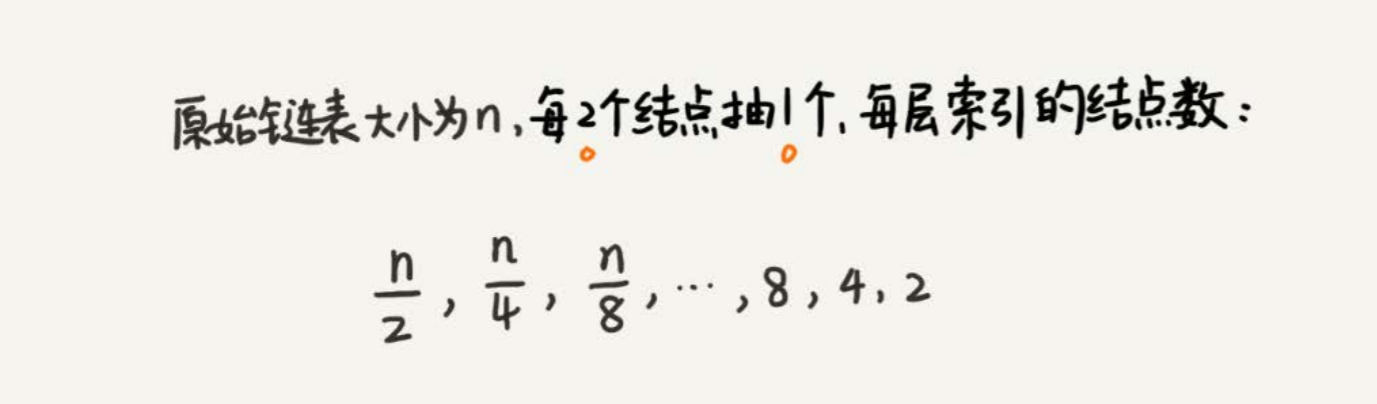 原始链表大小为n,每2个结点抽1个,每层索引的结点数:
n/2, n/4, n/8, …, 8, 4, 2